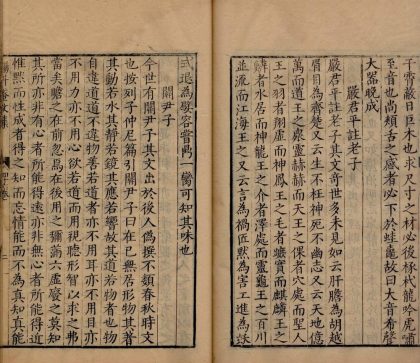 干霄蔽日巨木也求尺寸之材必後椽杙龍吟虎嘯
至音也尚頰舌之感者必下於蛙黽故曰大音希聲
大器晚成
嚴君平註老子
嚴君平註老子其文奇世多未見如云肝膽為胡越
眉目為齊楚又云生不枉神死不幽志又云天地億
萬而道王之衆靈赫赫而天王之倮者穴處而聖人
王之羽者翔虛而神鳳王之毛者蹠實而麒麟王之
鱗者水居而神龍王之介者澤處而靈龜王之百川
並流而江海王之又云言為禍匠默為害工進為妖
式退為孽容嘗鼎一臠可知其味也
關尹子
今世有關尹子其文出於後人偽撰不類春秋時文
也按列子仲尼篇引關尹子曰在已無居形物其箸
其動若水其靜若鏡其應若響故其道若物者也物
自違道道不違物善若道者亦不用耳亦不用目亦
不用力亦不用心欲若道而用視聽形智以求之弗
當矣瞻之在前忽焉在後用之彌滿六虛廢之莫知
其所亦非有心者所能得遠亦非無心者所能得近
惟黙而性成者得之知而忘情能而不為真知真能